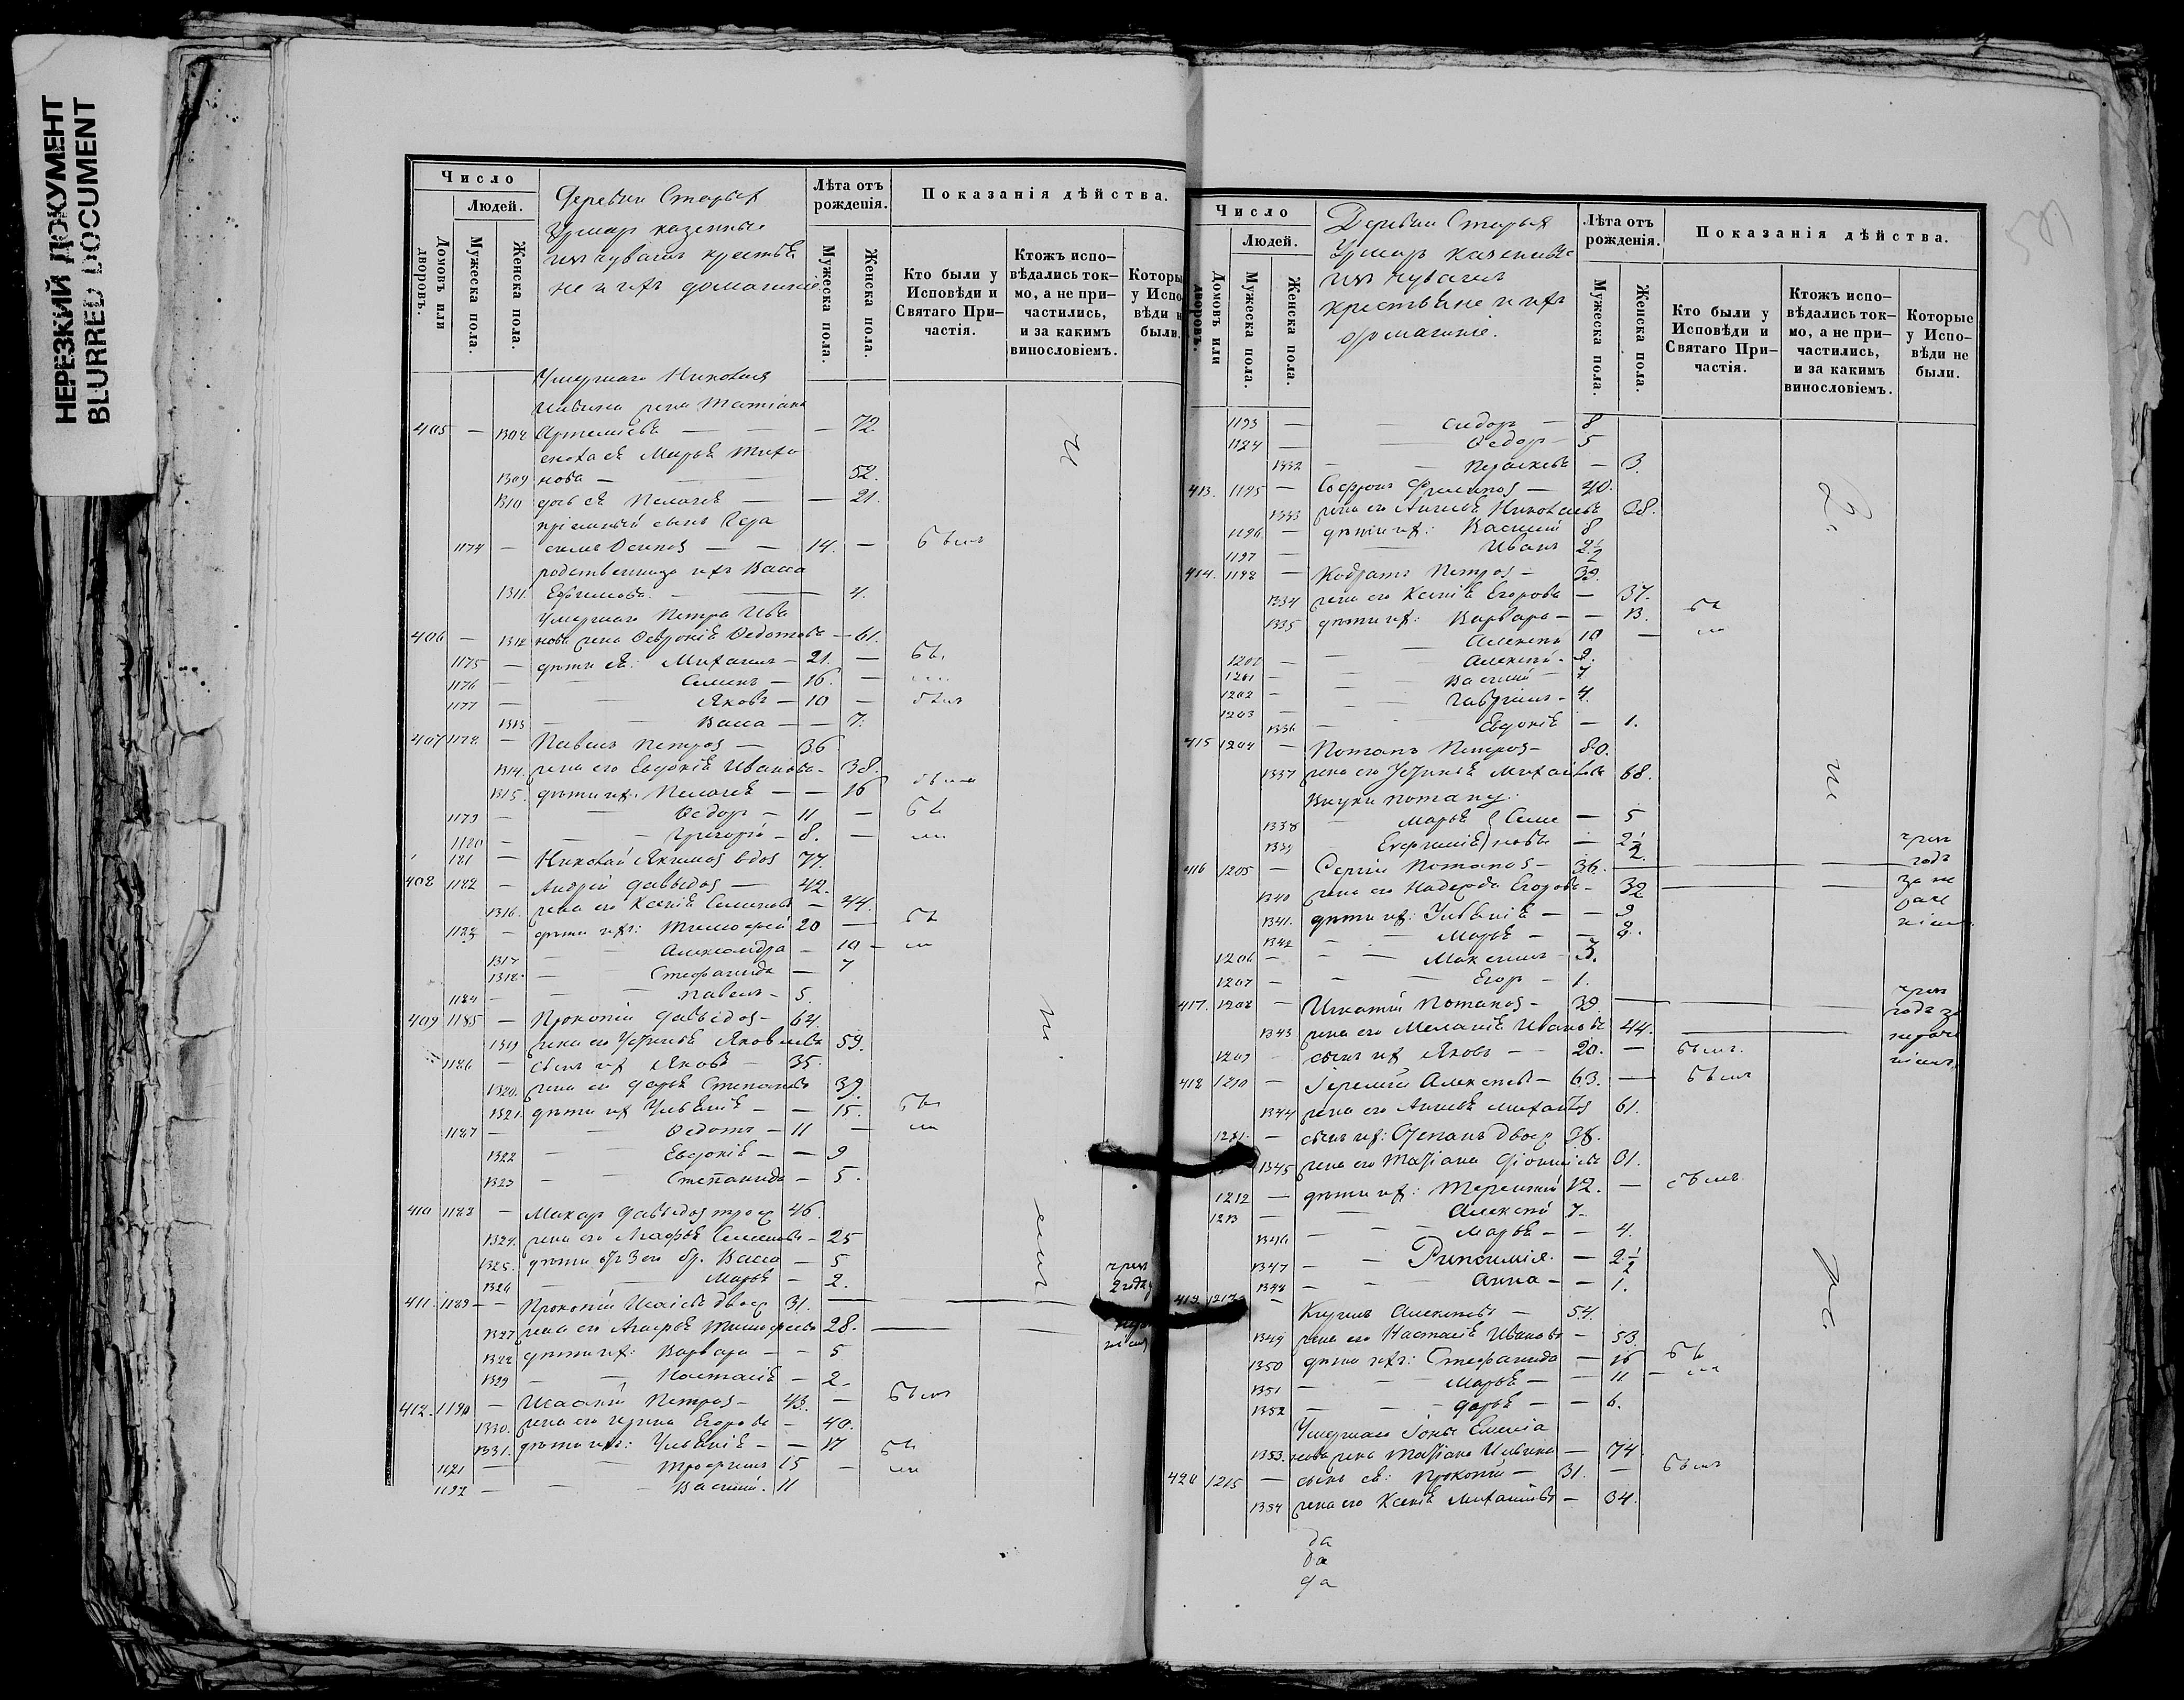 НЕРЕЗКИЙ ДОКУМЕНТ
BLURRED DOCUMENT
Число
Людей.
Домовъ или дворовъ.
Мужеска пола.
Женска пола.
Деревни Старыхъ
Урмар казенные
изъ чувашъ крестья
не и ихъ домашніе.
Лѣта отъ рожденія.
Мужеска пола.
Женска пола.
Показанія дѣйства.
Кто были у Исповѣди и Святаго При-частія.
Ктожъ испо-вѣдались ток-мо, а не при-частились, и за какимъ винословіемъ.
Которы
у Испо
вѣди н
были.
Умершаго Николая
жена Татіана
405 — 1308 Артемьева — — 72.
сноха ея Марья Тихо
1309 нова — 52.
1310 дочь ея Пелагея — — 21.
пріемный сынъ Гера
1174 — симъ Осиповъ — — 14. — былъ
родственница ихъ Васса
1311. Ефимова. — 4.
Умершаго Петра Ива
406 — 1312 нова жена Февронія Федотова — 61.
1175 — дѣти ея: Михаилъ — 21. — бы
1176 — Семенъ — 16. — ли
1177 — Яковъ — 10 — былъ
1313 — Васса — — 7.
407 1178 — Павелъ Петровъ — 36
1314. жена его Евдокія Иванова — 38.
1315. дѣти их: Пелагея — — 16 была
1179 — Федоръ — 11 — бы
1180 — Григорій — 8. — ли
181 — Николай Якимовъ вдов 77.
408 1182 — Андрей Давыдовъ — 42.
1316. жена его Ксенія Семенова — 44.
1183 — дѣти ихъ: Тимофей 20 — бы
1317 — Александра — 10 — ли
1318. — Стефанида — 7
1184 — Павелъ — 5.
409 1185 — Прокопій Давыдовъ — 64.
1319 жена его Устинья Яковлева 59.
1186 — сынъ их Яковъ — 35.
1320. жена его Дарья Степанова 39.
1321. дѣти их Ульянія — — 15. бы
1187 — Федотъ — 11 — ли
1322 — Евдокія — — 9
1323 — Степанида — 5.
410 1188 — Макаръ Давыдовъ троеж 46.
1324. жена его Агафья Семенова — 25
1325. дѣти от 3 го бр. Васса — 5
1326 Марья — 2.
411. 1189 — Прокопій Исаевъ двоеж 31. —
1327 жена его Агафья Тимофеева 28. —
1328 дѣти их: Варвара — — 5
1329 — Настасія — 2.
чрез
2 года
412. 1190 — Игнатій Петровъ — 43. — былъ
1330. жена его Ирина Егорова — 40.
1331. дѣти ихъ: Ульянія — — 17 бы
1191 — Трофимъ 15 — ли
1192 — Василій. 11
Число
Людей.
Домовъ или дворовъ.
Мужеска пола.
Женска пола.
Деревни Старыхъ
Урмар казенные
изъ чувашъ
крестьяне и ихъ
домашніе.
Лѣта отъ рожденія.
Мужеска пола.
Женска пола.
Показанія дѣйства.
Кто были у Исповѣди и Святаго При-частія.
Ктожъ испо-вѣдались ток-мо, а не при-частились, и за какимъ винословіемъ.
Которые у Испо-вѣди не были.
1193 — Сидоръ — 8
1194 — Федоръ — 5
1332 — Параскева — 3.
413. 1195 — Софронъ Филипповъ — 40.
1333 жена его Анисья Николаева 38.
1196 — дѣти их: Василій 8
1197 — Иванъ 2½
414. 1198 — Кодратъ Петровъ — 39.
1334 жена его Ксенія Егорова — 37.
1335 дѣти их: Варвара — — 13. бы
Алексѣй 10 — ли
1201 — Алексѣй — 9.
1201 — Василій — 7
1202 — Гавріилъ — 4.
1203
1336 — Евдокія — 1.
415 1204 — Потапъ Петровъ — 80.
1337 жена его Устинія Михайлова 68.
Внуки Потапу:
1338 — Марья } Семе — 5
1339 Евфимія } нова — 2½
416 1205 — Сергій Потаповъ — 36. —
1340 жена его Надежда Егорова — 32 —
чрез
годъ
за не
раче
ніемъ
1341. дѣти их: Ульянія — — 9
1342 — Марья — — 8.
1206 — Максимъ — 3.
1207 — Егоръ — 1.
417. 1208 — Игнатій Потаповъ — 39 —
1343 жена его Меланія Иванова 44. —
чрез
года за
нераче
ніемъ
1209 сынъ их Яковъ — — 20. — былъ.
418 1210 — Іеремій Алексѣевъ — 63. — былъ
1344 жена его Анисья Михайлов 61.
1211. — сынъ их: Степанъ двоеж 38.
1345 жена его Татіана Діонисіева 31.
1212 — дѣти их: Терентій 12. — былъ
1213 — Алексѣй 7.
1346 — Марья — — 4.
1347 — Рипсимія. — 2½
1348 — Анна — — 1.
419 1217 — Кирилъ Алексѣевъ — 54.
1349 жена его Настасія Иванова — 53.
1350 дѣти ихъ: Стефанида — 16 бы
1351 — Марья — — 11 — ли
1352 — Дарья — — 6.
Умершаго Іоны Емелія
1353. нова жена Татіана Ильина — 74.
420 1215 — сынъ ея: Прокопій — 31. — былъ
1354 жена его Ксенія Михайлова — 34.
да
да
да